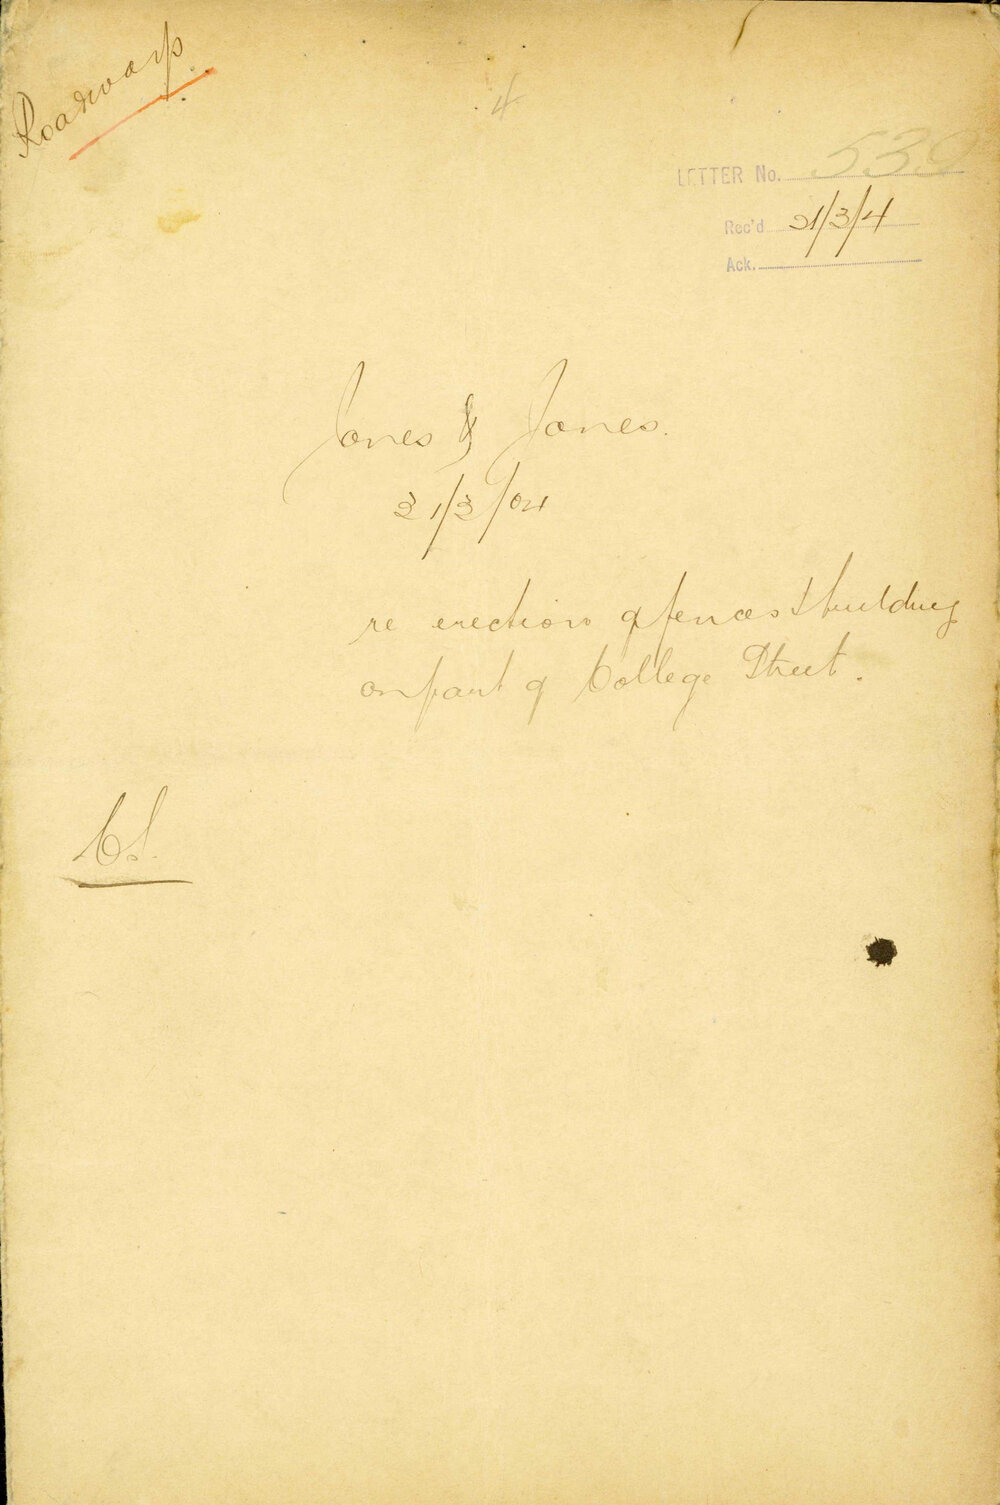 Roadways.
4
LETTER No. 539
Rec'd 21/3/4
Ack.
Jones & Jones.
21/3/04
re erection of fences & building
on part of College Street.